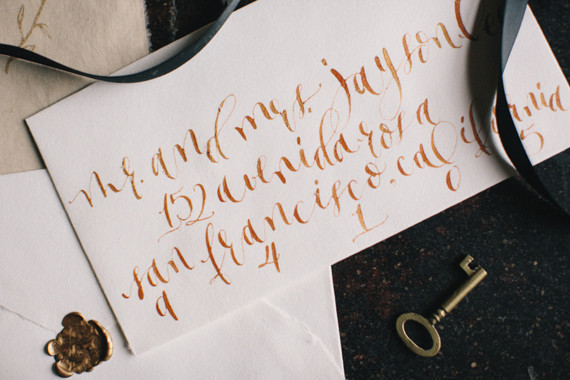 mr. and mrs. jayson
152 avenida rosa
san francisco. california
9 4 1 0 5